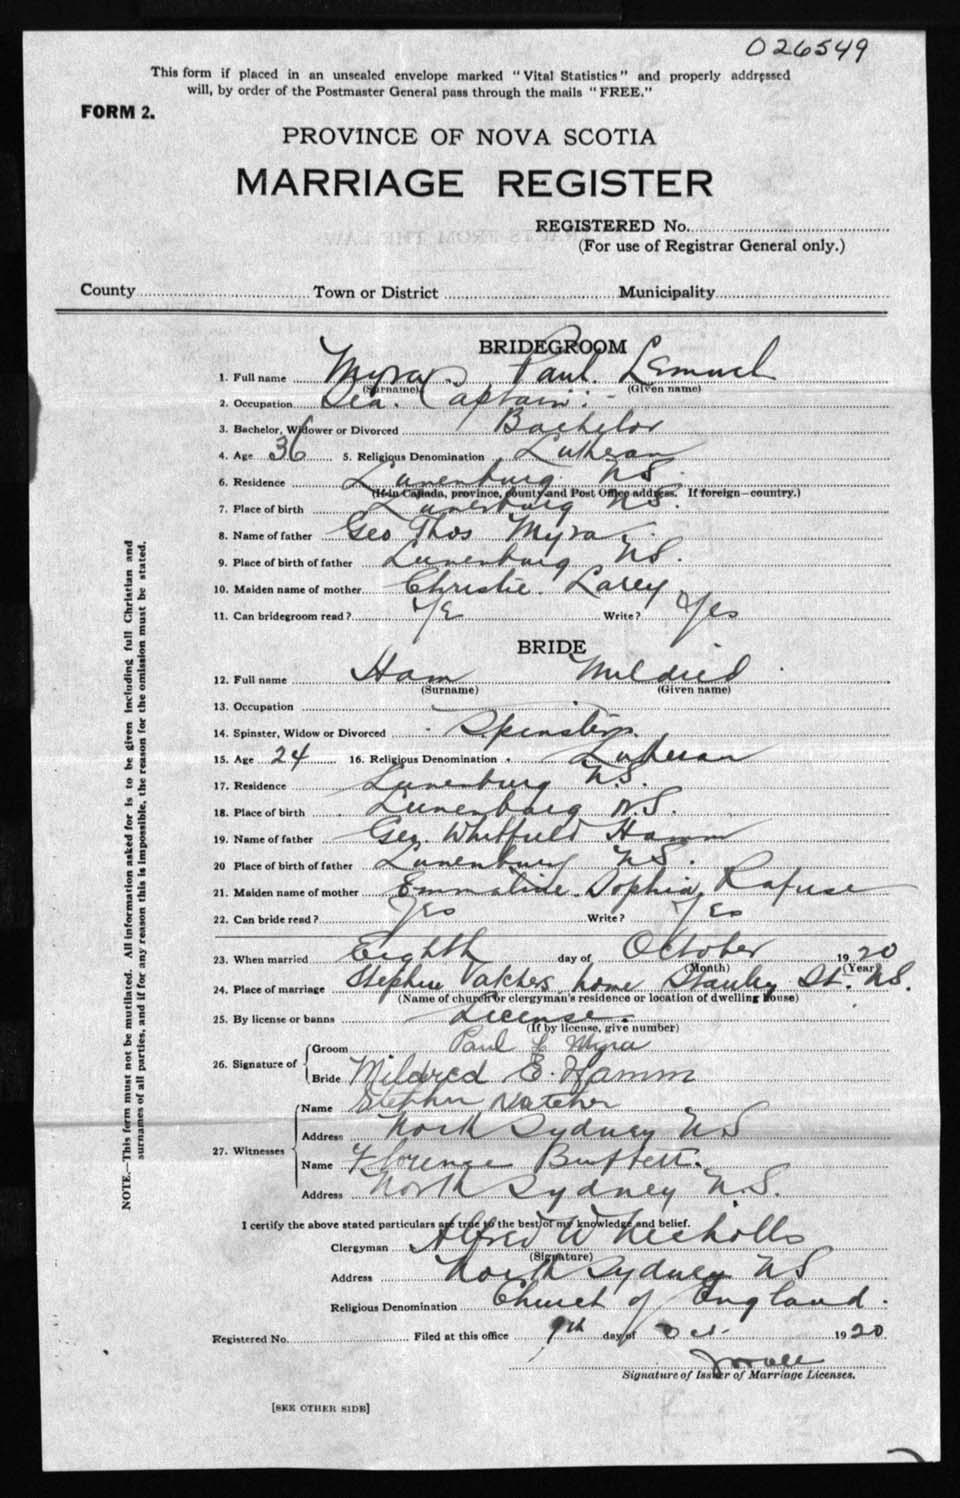 026549
This form if placed in an unsealed envelope marked "Vital Statistics" and properly addressed
will, by order of the Postmaster General pass through the mails "FREE."
FORM 2.
PROVINCE OF NOVA SCOTIA
MARRIAGE REGISTER
REGISTERED No.
(For use of Registrar General only.)
County Town or District Municipality
BRIDEGROOM
1. Full name Myra Paul Lemuel
(Surname) (Given name)
2. Occupation Sea. Captain.
3. Bachelor, Widower or Divorced Bachelor
4. Age 36 5. Religious Denomination Lutheran
6. Residence Lunenburg NS.
(If in Canada, province, county and Post Office address. If foreign—country.)
7. Place of birth Lunenburg NS.
8. Name of father Geo Thos Myra
9. Place of birth of father Lunenburg NS.
10. Maiden name of mother Christie
11. Can bridegroom read? Write? Yes
BRIDE
12. Full name Ham Mildred
(Surname) (Given name)
13. Occupation
14. Spinster, Widow or Divorced Spinster
15. Age 24 16. Religious Denomination Lutheran
17. Residence Lunenburg NS.
18. Place of birth Lunenburg NS.
19. Name of father Geo. Whitfield Hamm
20 Place of birth of father Lunenburg NS.
21. Maiden name of mother Emmaline Sophia Rafuse
22. Can bride read? Yes Write? Yes
23. When married Eighth day of October 1920
(Month) (Year)
24. Place of marriage Stephen Vatchers home Stanley St. NS.
(Name of church or clergyman's residence or location of dwelling house)
25. By license or banns License.
(If by license, give number)
26. Signature of Groom Paul L Myra
Bride Mildred E. Hamm
27. Witnesses Name Stephen Vatcher
Address North Sydney NS
Name Florence Buffett.
Address North Sydney N.S.
I certify the above stated particulars are true to the best of my knowledge and belief.
Clergyman Alfred W Nicholls
(Signature)
Address North Sydney NS
Religious Denomination Church of England.
Registered No. Filed at this office 9th day of Oct. 1920
Signature of Issuer of Marriage Licenses.
[SEE OTHER SIDE]
NOTE.—This form must not be mutilated. All information asked for is to be given including full Christian and
surnames of all parties, and if for any reason this is impossible, the reason for the omission must be stated.